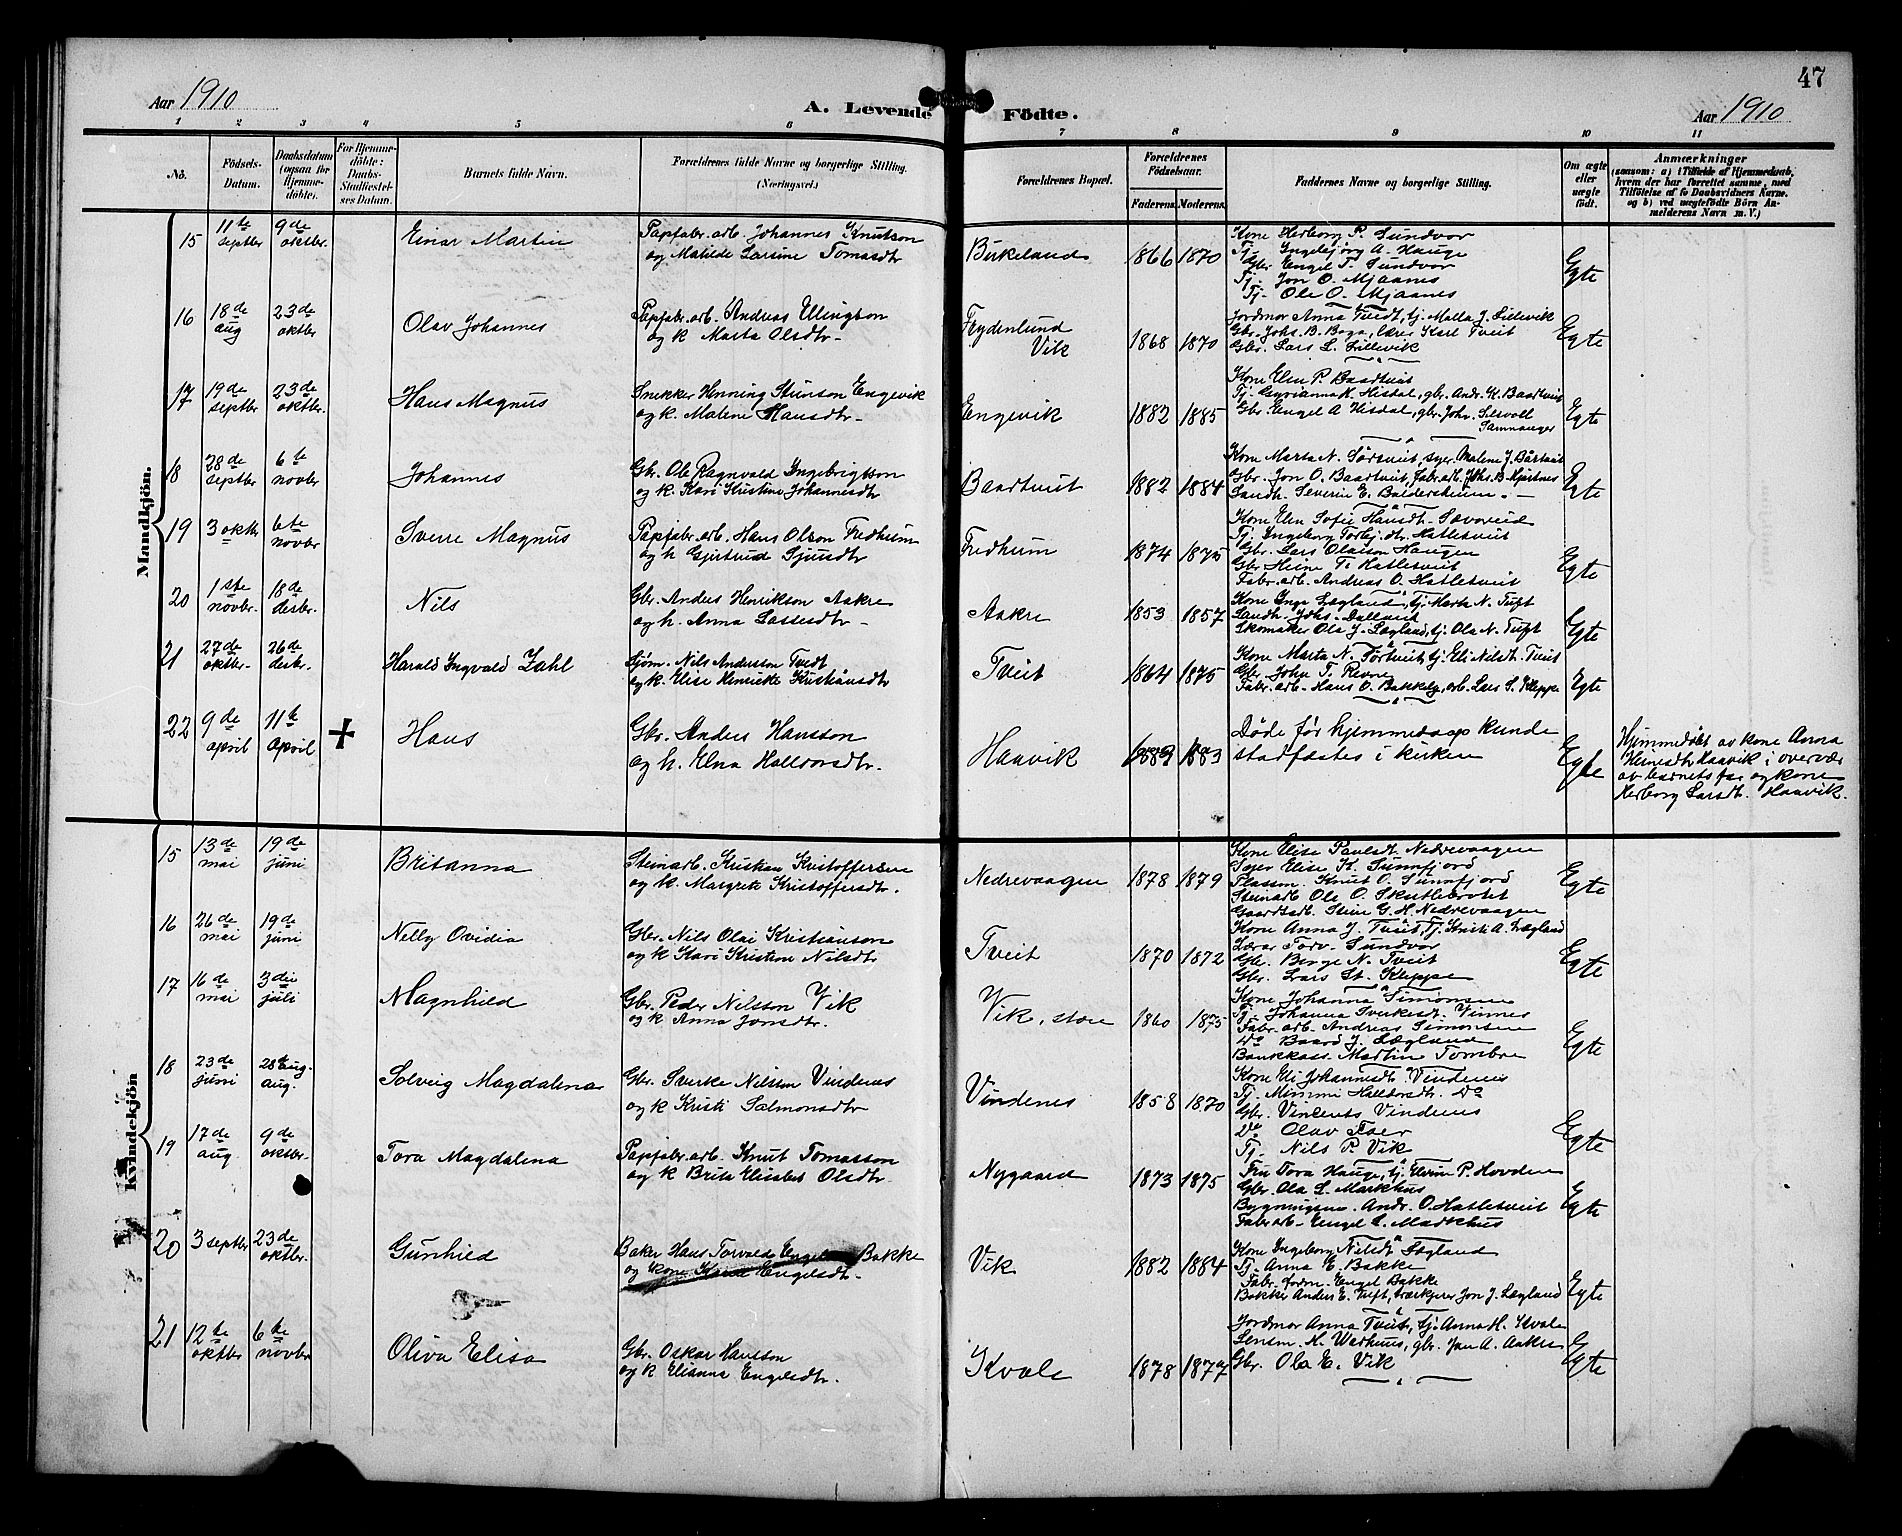 47
Aar 1910
A. Levende Födte.
Aar 1910
1 2 3 4 5 6 7 8 9 10 11
No.
Födsels-Datum.
Daabsdatum (ogsaa for Hjemmedöbte).
For Hjemmedöbte: Daabs-Stadfæstelses Datum.
Barnets fulde Navn.
Forældrenes fulde Navne og borgerlige Stilling. (Næringsvei.)
Forældrenes Bopæl.
Forældrenes Födselsaar.
Faderens. Moderens.
Faddernes Navne og borgerlige Stilling.
Om ægte eller uægte födt.
Anmærkninger
(saasom: a) i Tilfælde af Hjemmedaab, hvem der har forrettet samme, med Tilföielse af to Daabsvidners Navne. og b) ved uægtefödte Börn Anmelderens Navn m. V.)
Mandkjön.
15 11te septbr 9de oktbr. Einar Martin
Papfabr. arb. Johannes Knutson
og k. Matilde Larsine Tomasdtr
Birkeland 1866 1870
Kone Herborg P. Sundvor
Tj. Ingebjørg A. Hauge
Gbr. Engel T. Sundvor
Tj. Jon O. Mjaanes
Tj. Ole O. Mjaanes
Egte
16 18de aug 23de oktbr Olav Johannes
Papfabr. arb. Andreas Ellingson
og k Marta Olsdtr.
Frydenlund Vik 1868 1870
Jordmor Anna Tveit, tj. Malla J. Lillevik
Gbr. Johs. B. Boga, lærer Karl Tveit
Gbr. Lars L. Lillevik
Egte
17 19de septbr 23de oktbr. Hans Magnus
Snekker Henning Stenson Engevik
og k. Malene Hansdtr.
Engevik 1882 1885
Kone Elen P. Baadtveit
Tj. Cyrianna K. Hisdal, gbr. Andr. K. Baadtveit
Gbr. Engel A Hisdal, gbr. John.
Samnanger
Egte
18 28de septbr 6te novbr Johannes
Gbr. Ole Ragnvald Ingebrigtson
og k. Kari Kristine Johannesdtr
Baadtveit 1882 1884
Kone Marta N. Tørtveit, syer. Malene J. Bårtveit
Gbr. Jon O. Baadtveit, fabr. arb. Johs. B.
Landh. Severin E. Baldersheim
Egte
19 3 oktbr 6te novbr Sverre Magnus
Papfabr. arb. Hans Olson Fredheim
og h Gjertrud Sjursdtr
Fredheim 1874 1875
Kone Elen Sofie Hansdtr Sævareid
Tj. Ingeborg Torbj. dtr. Hatletveit
Gbr. Lars Olaison Haugen
Gbr Heine T. Hatletveit
Fabr. arb. Andreas O. Hatletveit
Egte
20 1ste novbr. 18de desbr. Nils
Gbr. Anders Henrikson Aakre
og h. Anna Lassesdtr
Aakre 1853 1857
Kone Inga Lægland, tj. Marta N. Tuft
Landh. Johs. Dalletveit
Skomaker Ola J. Lægland, tj. Ola N. Tuft
Egte
21 27de oktbr. 26de desbr. Harald Ingvald Zahl
Sjøm. Nils Anderson Tvedt
og k. Elise Henrikke Kristiansdtr
Tveit 1864 1875
Kone Marta N. Tørtveit, tj. Eli Nilsdt. Tveit
Gbr. John T. Revne
Fabr. arb. Hans O. Bakke, arb. Lars S. Kleppe
Egte
22 9de april 11te april + Hans
Gbr. Anders Hansson
og h. Elna Halldorsdtr.
Haavik 1883 1883
Døde før hjemmedaap kunde
stadfæstes i kirken
Egte
Hjemmedøbt av kone Anna
Heinesdtr Haavik i overvær
av barnets far og kone
Herborg Larsdt. Haavik.
Kvindekjön
15 13de mai 19de juni Britanna
Steinarb. Kristian Kristoffersen
og k. Margrete Kristoffersdtr.
Nedrevaagen 1878 1879
Kone Elise Paulsdt. Nedrevaagen
Syer Elise K. Sunnfjord
Plassm. Knut O. Sunnfjord
Steinarb Ole O. Skutlebrotet
Gaardsarb. Steine G. H. Nedrevaagen
Egte
16 26de mai 19de juni Nelly Ovidia
Gbr. Nils Olai Kristianson
og k Kari Kristine Nilsdtr
Tveit 1870 1872
Kone Anna J. Tveit, Tj. Kristi A. Lægland
Lærar Torv. Sundvor
Gbr. Birge N. Tveit
Gbr. Lars St. Kleppe
Egte
17 16de mai 3die juli Magnhild
Gbr. Peder Nilsson Vik
og k Anna Jonsdtr.
Vik, store 1860 1875
Kone Johanna Simonsen
Tj. Johanna Sverkesdt. Vinnes
Fabr. arb. Andreas Simonsen
Do Baard J. Lægland
Bankkass. Martin Tombre
Egte
18 23de juni 28de aug. aug. Solveig Magdalena
Gbr. Sverke Nilsson Vindenes
og k Kristi Salmonsdtr
Vindenes 1858 1870
Kone Eli Johannesdt. Vindenes
Tj. Mimmi Halldorsdt. Do
Gbr. Vincents Vindenes
Do Olav Faer
Tj. Nils P. Vik
Egte
19 17de aug. 9de oktbr. Tora Magdalena
Papfabr. arb. Knut Tomasson
og k Brita Elisabet Olsdtr.
Nygaard 1873 1875
Fru Tora Hauge, tj. Elevine P. Hovden
Gbr. Ola L. Markhus
Bygningsm. Andr. O. Hatletveit
Fabr. arb. Engel L. Markhus
Egte
20 3 septbr 23de oktbr. Gunhild
Baker Hans Torvald Bakke
og kone Engelsdt.
Vik 1882 1884
Kone Ingeborg Nilsdt Lægland
Tj. Anna E. Bakke
Fabr. form. Engel Bakke
Bakker Anders E. Tuft, værkfører Jon J. Lægland
Egte
21 12te oktbr 6te novbr Oliva Elisa
Gbr. Oskar Hansson
og k Elianna Engelsdtr.
Kvale 1878 1877
Jordmor Anna Tveit, tj. Anna H. Kvale
Lensm. H. Wathnes, gbr. Jon A. Aakre
Gbr. Ola E. Vik
Egte